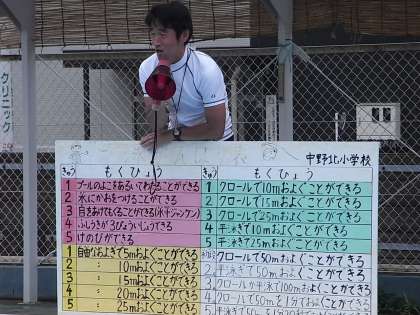 クリニック
中野北小学校
きゅう もくひょう
1 プールのよこをあるいてわたることができる
2 水にかおをつけることができる
3 目をあけてもぐることができる(水中ジャンケン)
4 ふしうきが3びょういじょうできる
5 けのびができる
1 自由なおよぎで5mおよぐことができる
2 〃 10mおよぐことができる
3 〃 15mおよぐことができる
4 〃 20mおよぐことができる
5 〃 25mおよぐことができる
きゅう もくひょう
1 クロールで10mおよぐことができる
2 クロールで15mおよぐことができる
3 クロールで25mおよぐことができる
4 平泳ぎで10mおよぐことができる
5 平泳ぎで25mおよぐことができる
クロールで50mおよぐことができる
2 平泳ぎで50mおよぐことができる
3 クロールで100mおよぐことができる
4 クロールで50mを1分でおよぐことができる